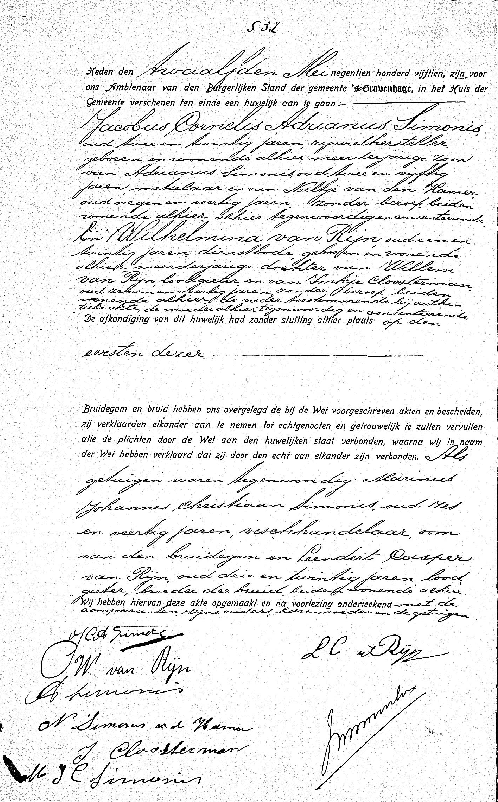 532
Heden den Twaalfden Mei negentien honderd vijftien, zijn voor
ons Ambtenaar van den Burgerlijken Stand der gemeente 's-Gravenhage, in het Huis der
Gemeente verschenen ten einde een huwelijk aan te gaan:
Jacobus Cornelis Adrianus Simonis,
oud twintig jaren,
geboren en wonende alhier, meerderjarige zoon
van Adrianus Simonis, oud vijftig
jaren, makelaar en van Neeltje van den Hamer,
oud negen en veertig jaren, zonder beroep, beiden
wonende alhier,
En Wilhelmina van Rijn, oud een en
twintig jaren, dienstbode, geboren en wonende
alhier, dochter van Willem
van Rijn, loodgieter en van Jintje Cloosterman,
oud zonder beroep, beiden
wonende alhier,
de alhier tegenwoordig en
De afkondiging van dit huwelijk had zonder stuiting alhier plaats op den
eersten dezer
Bruidegom en bruid hebben ons overgelegd de bij de Wet voorgeschreven akten en bescheiden,
zij verklaarden elkander aan te nemen tot echtgenooten en getrouwelijk te zullen vervullen
alle de plichten door de Wet aan den huwelijken staat verbonden, waarna wij in naam
der Wet hebben verklaard dat zij door den echt aan elkander zijn verbonden. Als
getuigen waren tegenwoordig: Marinus
Johannes Christiaan Simonis, oud zes
en veertig jaren, vischhandelaar, oom
van den bruidegom en Leendert Casper
van Rijn, oud drie en twintig jaren, lood
gieter, broeder der bruid, beiden wonende alhier
Wij hebben hiervan deze akte opgemaakt en na voorlezing onderteekend met de
en de getuigen
J C A Simonis
W. van Rijn
L C v Rijn
A Simonis
N Simonis v d Hamer
J. Cloosterman
M J C Simonis